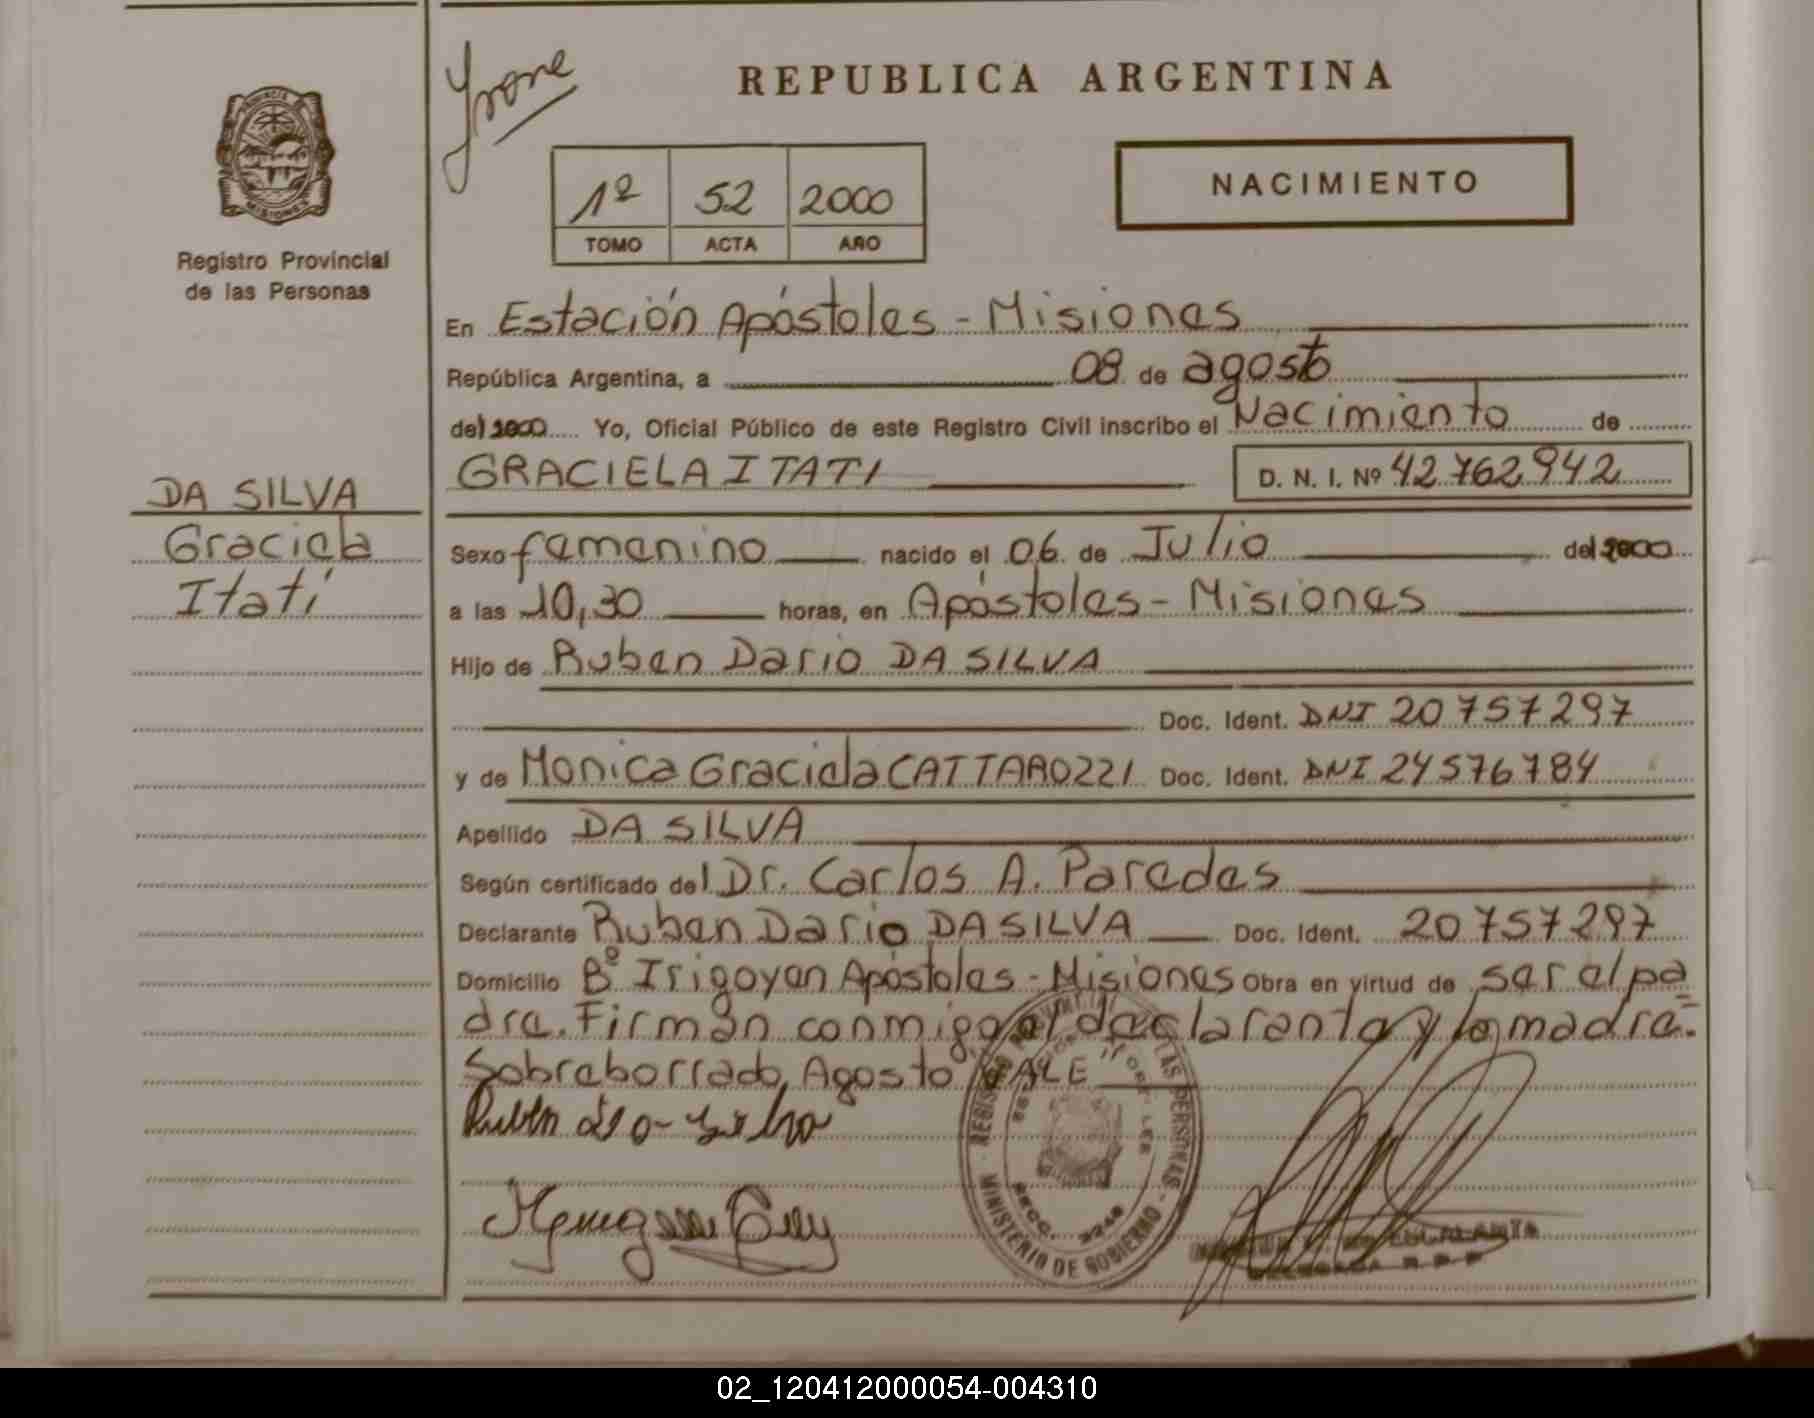 Yvone
REPUBLICA ARGENTINA
PROVINCIA DE
MISIONES
Registro Provincial
de las Personas
1º 52 2000
TOMO ACTA AÑO
NACIMIENTO
En Estación Apóstoles - Misiones
República Argentina, a 08 de agosto
del 2000 Yo, Oficial Público de este Registro Civil inscribo el Nacimiento de
GRACIELA ITATI D. N. I. Nº 42.762.942
DA SILVA
Graciela
Itatí
Sexo femenino nacido el 06 de Julio del 2000
a las 10,30 horas, en Apóstoles - Misiones
Hijo de Ruben Dario DA SILVA
Doc. Ident. DNI 20757297
y de Monica Graciela CATTAROZZI Doc. Ident. DNI 24576784
Apellido DA SILVA
Según certificado del Dr. Carlos A. Paredes
Declarante Ruben Dario DA SILVA Doc. Ident. 20757297
Domicilio Bº Irigoyen Apóstoles - Misiones Obra en virtud de ser el pa
dre. Firman conmigo el declarante y la madre.=
Sobreborrado, Agosto VALE
Ruben da silva
REGISTRO PROVINCIAL DE LAS PERSONAS
MINISTERIO DE GOBIERNO
02_120412000054-004310